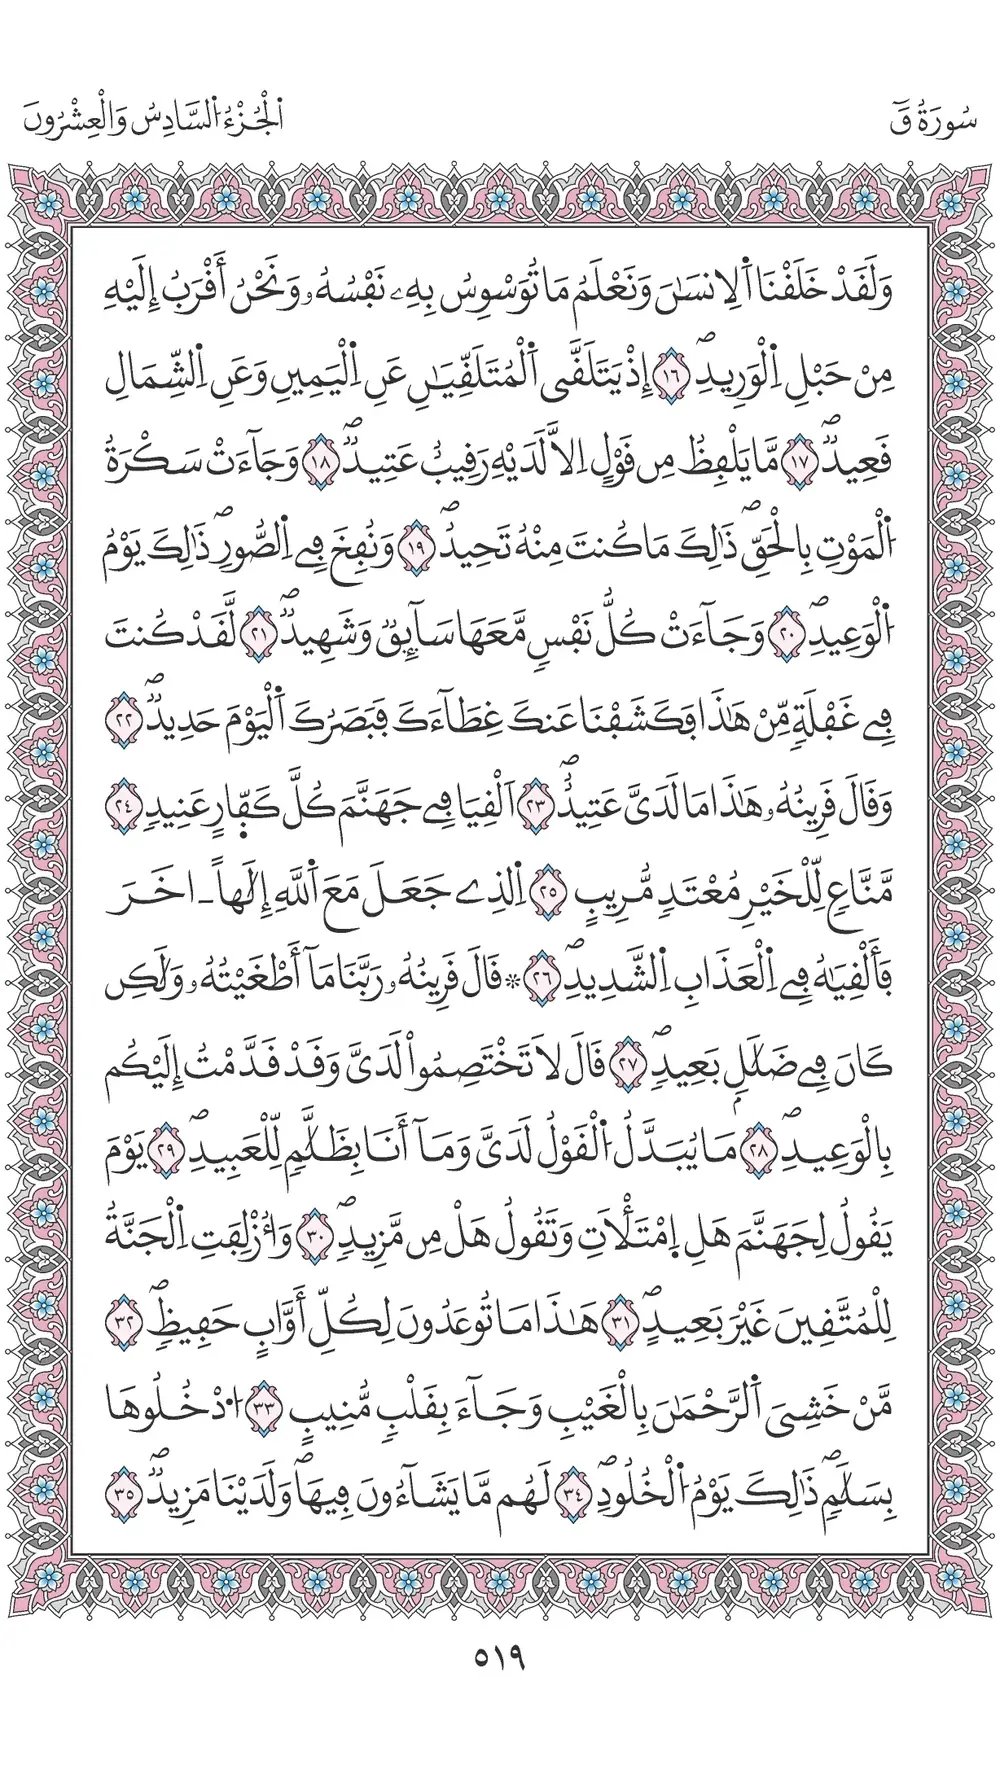 سُورَةُ قٓ
اَلْجُزْءُ السَّادِسُ وَالْعِشْرُونَ
وَلَقَدْ خَلَقْنَا اَ۬لِانسَٰنَ وَنَعْلَمُ مَا تُوَسْوِسُ بِهِۦ نَفْسُهُۥ وَنَحْنُ أَقْرَبُ إِلَيْهِ
مِنْ حَبْلِ اِ۬لْوَرِيدِۖ ١٦ إِذْ يَتَلَقَّى اَ۬لْمُتَلَقِّيَٰنِ عَنِ اِ۬لْيَمِينِ وَعَنِ اِ۬لشِّمَالِ
قَعِيدٞۖ ١٧ مَّا يَلْفِظُ مِن قَوْلٍ اِلَّا لَدَيْهِ رَقِيبٌ عَتِيدٞۖ ١٨ وَجَآءَتْ سَكْرَةُ
اُ۬لْمَوْتِ بِالْحَقِّۖ ذَٰلِكَ مَا كُنتَ مِنْهُ تَحِيدُۖ ١٩ وَنُفِخَ فِے اِ۬لصُّورِۖ ذَٰلِكَ يَوْمُ
اُ۬لْوَعِيدِۖ ٢٠ وَجَآءَتْ كُلُّ نَفْسٖ مَّعَهَا سَآئِقٞ وَشَهِيدٞۖ ٢١ لَّقَدْ كُنتَ
فِے غَفْلَةٖ مِّنْ هَٰذَا فَكَشَفْنَا عَنكَ غِطَآءَكَ فَبَصَرُكَ اَ۬لْيَوْمَ حَدِيدٞۖ ٢٢
وَقَالَ قَرِينُهُۥ هَٰذَا مَا لَدَيَّ عَتِيدٌۖ ٢٣ اَلْقِيَا فِے جَهَنَّمَ كُلَّ كَفّ۪ارٍ عَنِيدٖ ٢٤
مَّنَّاعٖ لِّلْخَيْرِ مُعْتَدٖ مُّرِيبٍ ٢٥ اِ۬لذِے جَعَلَ مَعَ اَ۬للَّهِ إِلَٰهاً ـ اخَرَ
فَأَلْقِيَٰهُ فِے اِ۬لْعَذَابِ اِ۬لشَّدِيدِۖ ٢٦ ۞ قَالَ قَرِينُهُۥ رَبَّنَا مَآ أَطْغَيْتُهُۥ وَلَٰكِن
كَانَ فِے ضَلَٰلِۢ بَعِيدٖۖ ٢٧ قَالَ لَا تَخْتَصِمُواْ لَدَيَّ وَقَدْ قَدَّمْتُ إِلَيْكُم
بِالْوَعِيدِۖ ٢٨ مَا يُبَدَّلُ اُ۬لْقَوْلُ لَدَيَّ وَمَآ أَنَا بِظَلَّٰمٖ لِّلْعَبِيدِۖ ٢٩ يَوْمَ
يَقُولُ لِجَهَنَّمَ هَلِ اِ۪مْتَلَأْتِ وَتَقُولُ هَلْ مِن مَّزِيدٖۖ ٣٠ وَأُزْلِفَتِ اِ۬لْجَنَّةُ
لِلْمُتَّقِينَ غَيْرَ بَعِيدٍۖ ٣١ هَٰذَا مَا تُوعَدُونَ لِكُلِّ أَوَّابٍ حَفِيظٖۖ ٣٢
مَّنْ خَشِيَ اَ۬لرَّحْمَٰنَ بِالْغَيْبِ وَجَآءَ بِقَلْبٖ مُّنِيبٍ ٣٣ اُ۟دْخُلُوهَا
بِسَلَٰمٖۖ ذَٰلِكَ يَوْمُ اُ۬لْخُلُودِۖ ٣٤ لَهُم مَّا يَشَآءُونَ فِيهَاۖ وَلَدَيْنَا مَزِيدٞۖ ٣٥
٥١٩